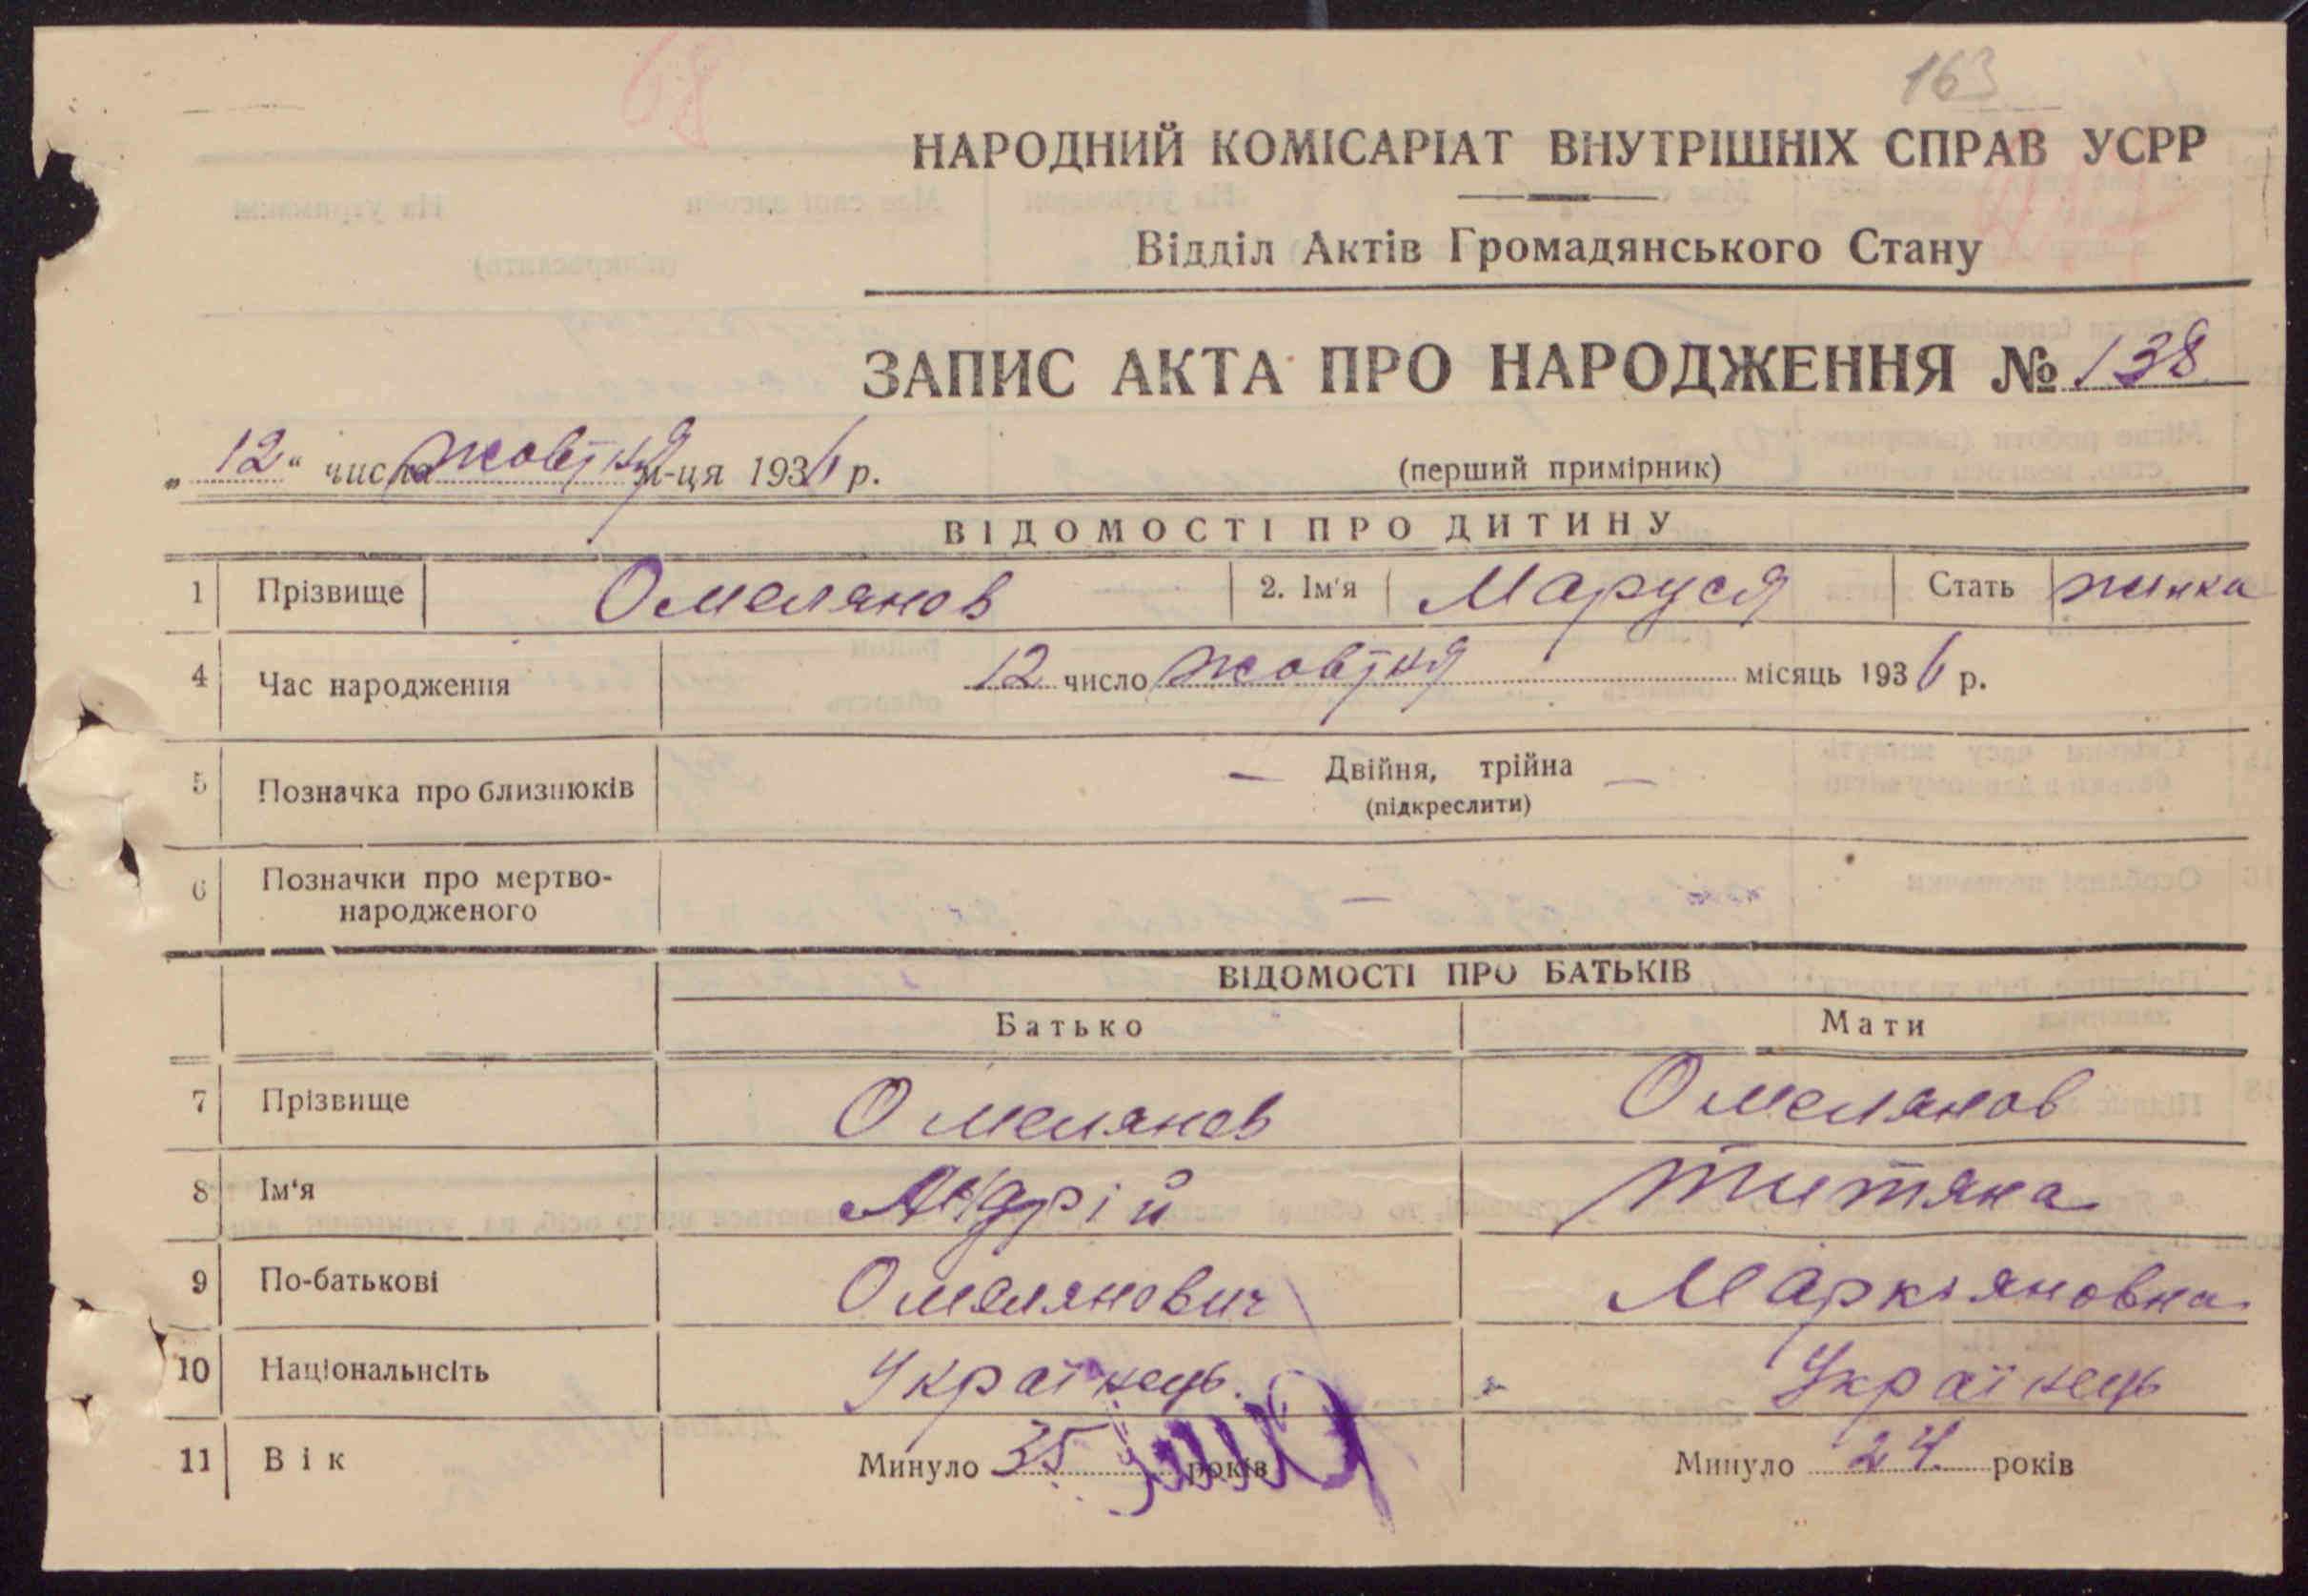 163
68
НАРОДНИЙ КОМІСАРІАТ ВНУТРІШНІХ СПРАВ УСРР
Відділ Актів Громадянського Стану
ЗАПИС АКТА ПРО НАРОДЖЕННЯ № 138
„ 12 “ числа жовтня м-ця 1936 р. (перший примірник)
ВІДОМОСТІ ПРО ДИТИНУ
1 Прізвище Омелянов 2. Ім'я Маруся Стать жинка
4 Час народження 12 число жовтня місяць 1936 р.
5 Позначка про близнюків — Двійня, трійна —
(підкреслити)
6 Позначки про мертво-
народженого —
ВІДОМОСТІ ПРО БАТЬКІВ
Батько Мати
7 Прізвище Омелянов Омелянов
8 Ім'я Андрій Титяна
9 По-батькові Омелянович Маркіяновна
10 Національність Українець. Українець
11 Вік Минуло 35 років Минуло 24 років